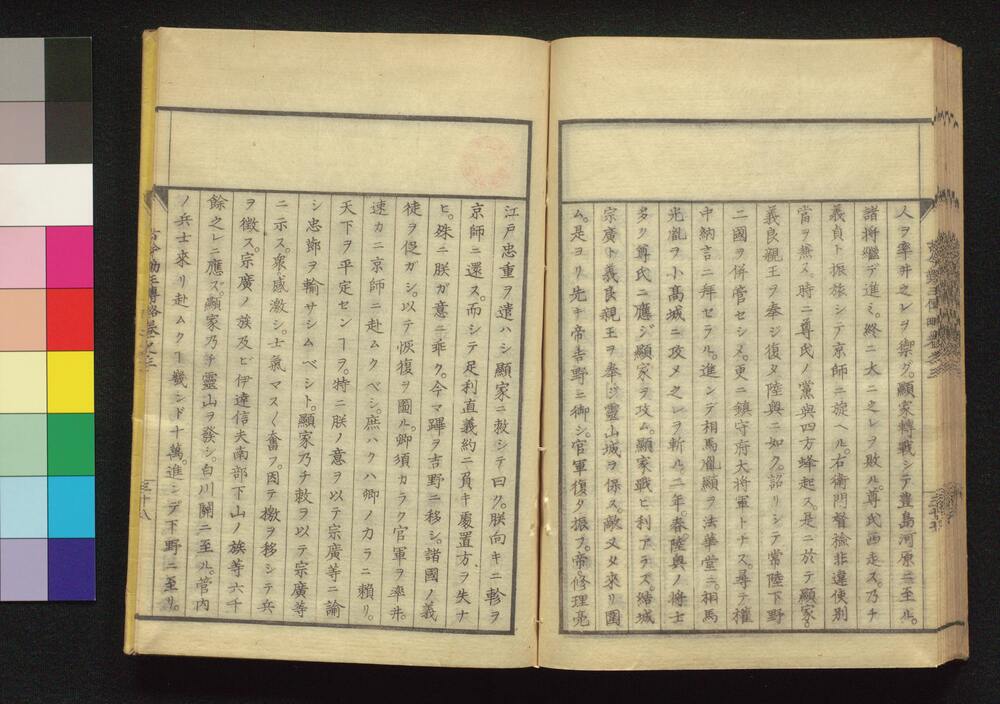 人ヲ率井之レヲ禦グ。顯家轉戰シテ豊島河原ニ至ル。
諸將繼デ進ミ。終ニ大ニ之レヲ敗ル。尊氏西走ス。乃チ
義貞ト振旅シテ京師ニ旋ヘル。右衛門督檢非違使別
當ヲ兼ヌ。時ニ尊氏ノ黨與四方蜂起ス。是ニ於テ顯家。
義良親王ヲ奉ジ復タ陸奥ニ如ク。詔リシテ常陸下野
二國ヲ併管セシメ。更ニ鎮守府大將軍トナス。尋テ權
中納言ニ拜セラル。進ンデ相馬胤顯ヲ法華堂ニ。相馬
光胤ヲ小高城ニ攻メ之レヲ斬ル。二年。春。陸奥ノ將士
多ク尊氏ニ應ジ顯家ヲ攻ム。顯家戰ヒ利アラズ。結城
宗廣ト義良親王ヲ奉ジ靈山城ヲ保ス。敵又タ來リ圍
ム。是ヨリ先キ帝吉野ニ御シ。官軍復タ振フ。帝。修理亮
江戸忠重ヲ遣ハシ顯家ニ敕シテ曰ク。朕向キニ軫ヲ
京師ニ還ス。而シテ足利直義約ニ負キ處置方ヲ失ナ
ヒ。殊ニ朕ガ意ニ乖ク。今マ蹕ヲ吉野ニ移シ。諸國ノ義
徒ヲ促ガシ。以テ恢復ヲ圖ル。卿須カラク官軍ヲ率井。
速カニ京師ニ赴ムクベシ。庶ハクハ卿ノ力ラニ賴リ。
天下ヲ平定セン𬼀ヲ。特ニ朕ノ意ヲ以テ宗廣等ニ諭
シ忠節ヲ輸サシムベシト。顯家乃チ敕ヲ以テ宗廣等
ニ示ス。衆感激シ。士氣マス〱奮フ。因テ檄ヲ移シテ兵
ヲ徴ス。宗廣ノ族及ビ伊達信夫南部下山ノ族等六千
餘之レニ應ズ。顯家乃チ靈山ヲ發シ。白川關ニ至ル。管内
ノ兵士來リ赴ムク𬼀幾ンド十萬。進ンデ下野ニ至リ。
古今勤王傳略卷之三
三十八